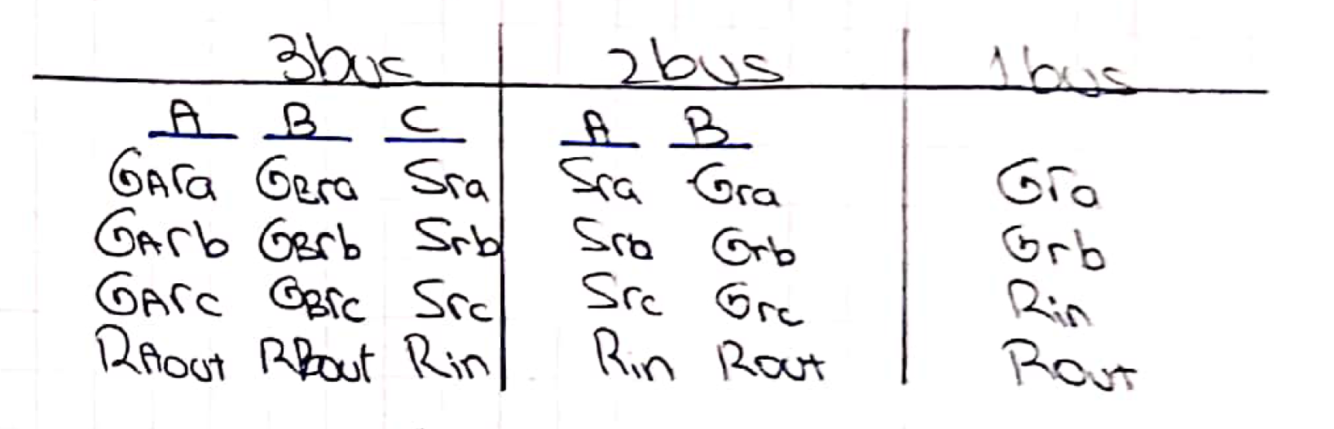 3bus 2bus 1bus
A B C A B
GAra GBra Sra Sra Gra Gra
GArb GBrb Srb Srb Grb Grb
GArc GBrc Src Src Grc Rin
RAout RBout Rin Rin Rout Rout